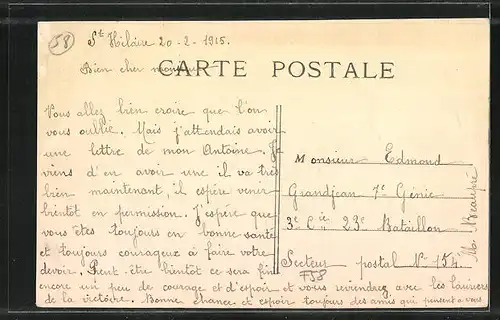 58
St Hilaire 20-2-1915.
Bien cher monsieur
CARTE POSTALE
Vous allez bien croire que l'on
vous oublie. Mais j'attendais avoir
une lettre de mon Antoine. Je
viens d'en avoir une il va très
bien maintenant, il espère venir
bientôt en permission. J'espère que
vous êtes toujours en bonne santé
et toujours courageux à faire votre
devoir. Peut être bientôt ce sera fini
encore un peu de courage et d'espoir et vous reviendrez avec les lauriers
de la victoire. Bonne chance et espoir toujours des amis qui pensent a vous
Monsieur Edmond
Grandjean 7e Génie
3e Cie 23e Bataillon
Secteur postal No 154.
F58